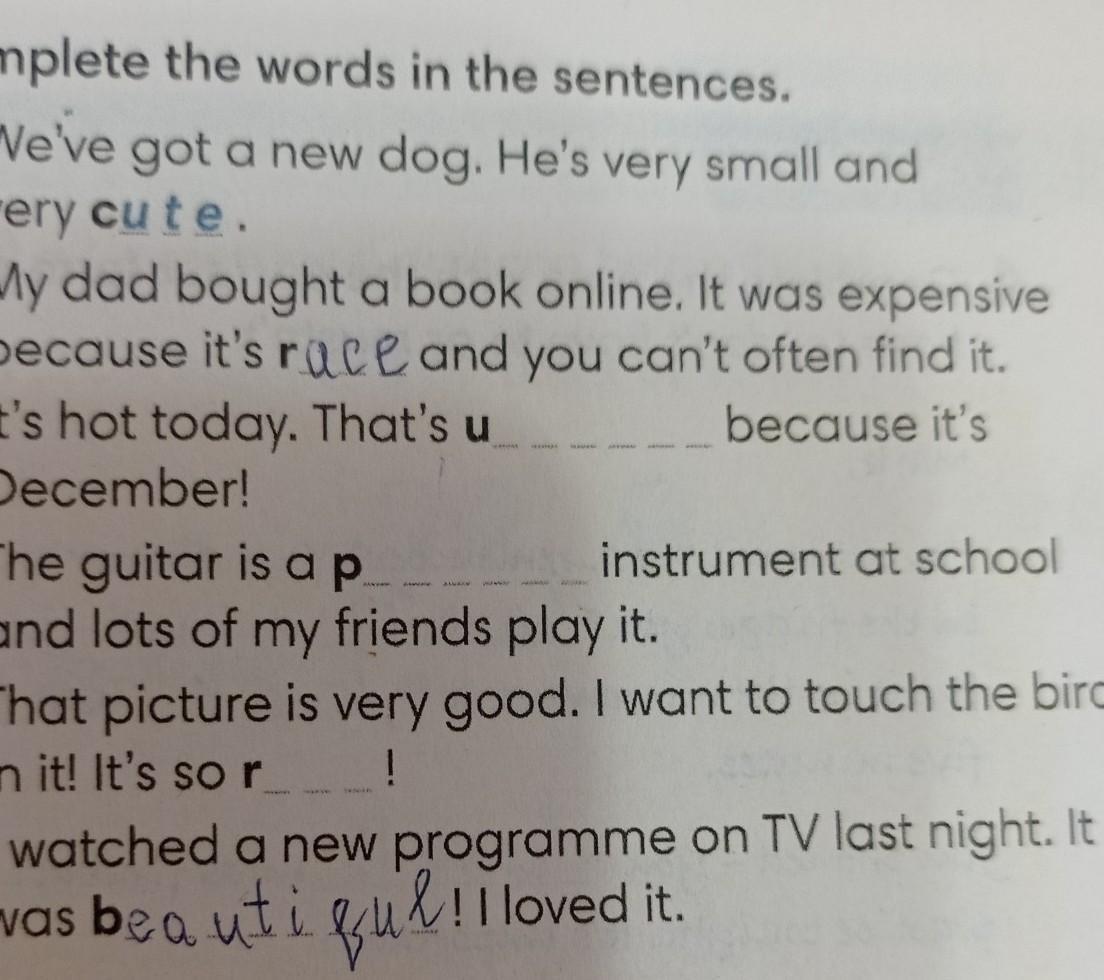 mplete the words in the sentences.
We've got a new dog. He's very small and
ery cute.
My dad bought a book online. It was expensive
because it's race and you can't often find it.
t's hot today. That's u_ _ _ _ _ _ because it's
December!
The guitar is a p_ _ _ _ _ _ instrument at school
and lots of my friends play it.
That picture is very good. I want to touch the bird
n it! It's so r_ _ _!
watched a new programme on TV last night. It
was beautiful! I loved it.